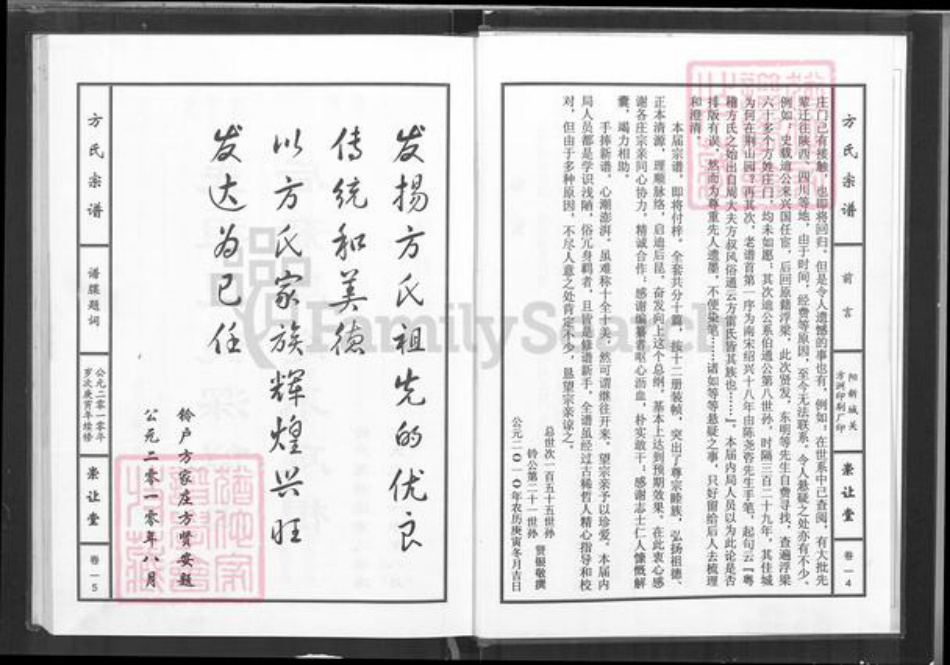 方氏宗谱
前言
阳新城关
方洲印刷厂印
崇让堂
卷一4
庄门已有接触，也即将回归。但是令人遗憾的事也有，例如，在世系中已查阅，有大批先
辈迁往陕西、四川等地，由于时间，经费等原因，至今无法联系。令人悬疑之处亦有不少、
例如，史载迪公来兴国任宦，后回原籍浮梁，此次贤发，东明等先生自费寻找，查遍浮梁
六十多个方姓庄门，均未如愿；其次迪公系伯通公第八世孙，时隔三百二十九年，其佳城
为何在荆山园？再其次，老谱首第一序为南宋绍兴十八年由陈尧咨先生手笔，起句云『粤
稽方氏之始出自周大夫方叔风俗通云方雷氏皆其族也……』。本届内局人员以为此论是否
排版有误，然而为尊重先人遗墨，不便染笔……诸如等等悬疑之事，只好留给后人去梳理
和澄清。
本届宗谱，即将付梓。全套共分十篇，按十二册装帧，突出了尊宗睦族，弘扬祖德、
正本清源，理顺脉络，启迪后昆，奋发向上这个总纲，基本上达到预期效果。在此衷心感
谢各庄宗亲同心协力，精诚合作；感谢编纂者呕心沥血，朴实敢干；感谢志士仁人慷慨解
囊，竭力相助。
手捧新谱，心潮澎湃。虽难称十全十美，然可谓继往开来。望宗亲予以珍爱。本届内
局人员都是学识浅陋，俗冗身羁者，且皆是修谱新手。全谱虽经过古稀哲人精心指导和校
对，但由于多种原因，不尽人意之处肯定不少，恳望宗亲谅之。
总世次一百五十五世孙
铃公第二十一世孙
贤银敬撰
公元二〇一〇年农历庚寅冬月吉日
发扬方氏祖先的优良
传统和美德
以方氏家族辉煌兴旺
发达为己任
铃户方家庄方贤安题
公元二零一零年八月
方氏宗谱
谱牒题词
公元二零一零年
岁次庚寅年续修
崇让堂
卷一5
FamilySearch